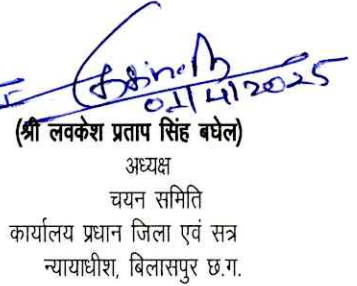 01/4/2025
(श्री लवकेश प्रताप सिंह बघेल)
अध्यक्ष
चयन समिति
कार्यालय प्रधान जिला एवं सत्र
न्यायाधीश, बिलासपुर छ.ग.